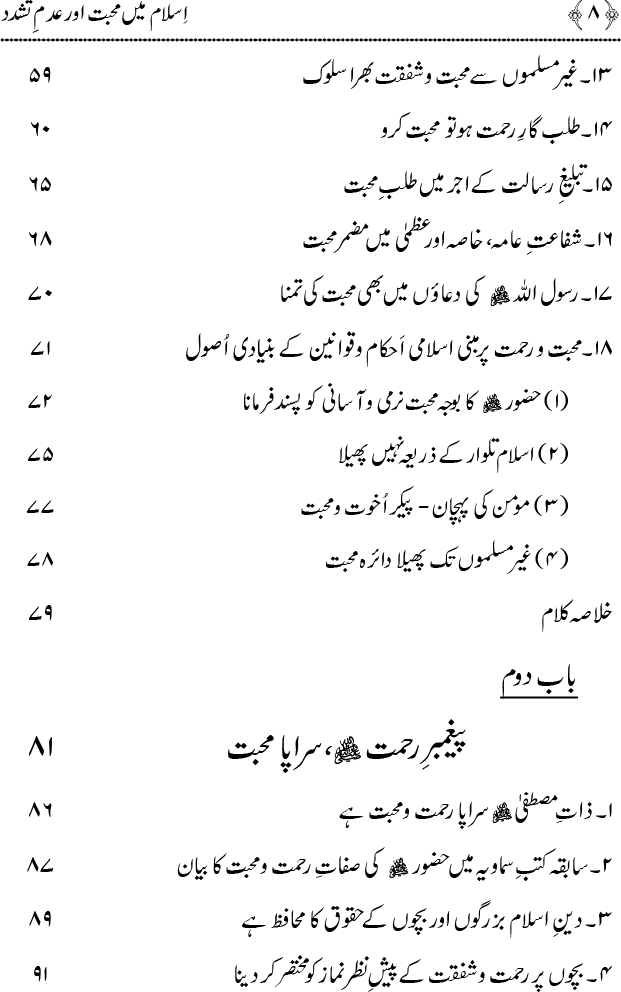 ﴿ ۸ ﴾ اِسلام میں محبت اور عدمِ تشدد
۱۳۔ غیر مسلموں سے محبت و شفقت بھرا سلوک ۵۹
۱۴۔ طلب گارِ رحمت ہو تو محبت کرو ۶۰
۱۵۔ تبلیغِ رسالت کے اجر میں طلبِ محبت ۶۵
۱۶۔ شفاعتِ عامہ، خاصہ اور عظمیٰ میں مضمر محبت ۶۸
۱۷۔ رسول اللہ ﷺ کی دعاؤں میں بھی محبت کی تمنا ۷۰
۱۸۔ محبت و رحمت پر مبنی اسلامی اَحکام و قوانین کے بنیادی اُصول ۷۱
(۱) حضور ﷺ کا بوجہ محبت نرمی و آسانی کو پسند فرمانا ۷۲
(۲) اسلام تلوار کے ذریعہ نہیں پھیلا ۷۵
(۳) مؤمن کی پہچان - پیکر اُخوت و محبت ۷۷
(۴) غیر مسلموں تک پھیلا دائرہ محبت ۷۸
خلاصہ کلام ۷۹
باب دوم
پیغمبرِ رحمت ﷺ، سراپا محبت ۸۱
۱۔ ذاتِ مصطفیٰ ﷺ سراپا رحمت و محبت ہے ۸۶
۲۔ سابقہ کتبِ سماویہ میں حضور ﷺ کی صفاتِ رحمت و محبت کا بیان ۸۷
۳۔ دینِ اسلام بزرگوں اور بچوں کے حقوق کا محافظ ہے ۸۹
۴۔ بچوں پر رحمت و شفقت کے پیشِ نظر نماز کو مختصر کر دینا ۹۱